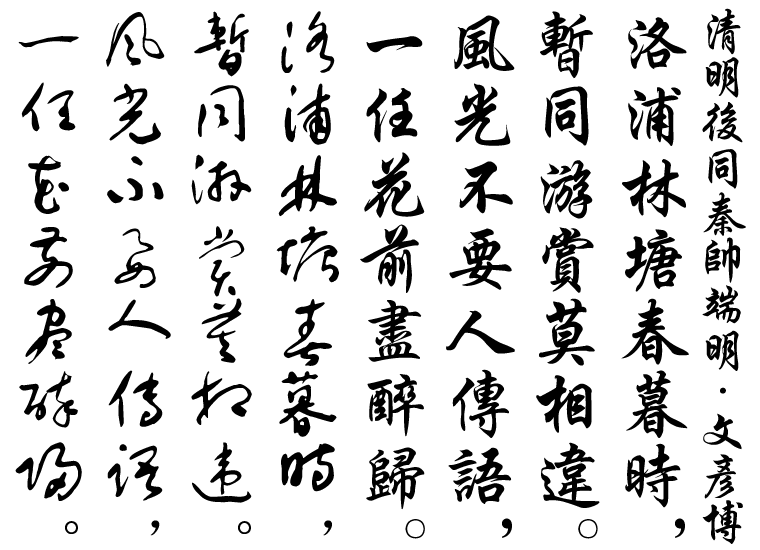 清明後同秦帥端明·文彥博
洛浦林塘春暮時，
暫同游賞莫相違。
風光不要人傳語，
一任花前盡醉歸。
洛浦林塘春暮時，
暫同游賞莫相違。
風光不要人傳語，
一任花前盡醉歸。